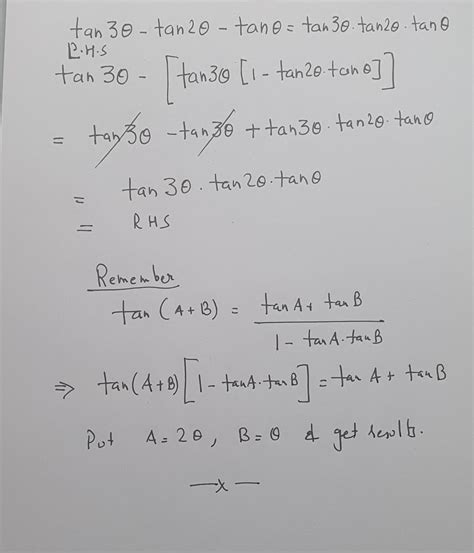 tan3θ - tan2θ - tanθ = tan3θ·tan2θ·tanθ
L.H.S
tan 3θ - [tan3θ [1 - tan2θ·tanθ]]
= tan3θ - tan3θ + tan3θ·tan2θ·tanθ
= tan3θ·tan2θ·tanθ
= RHS
Remember
tan (A+B) = tanA + tanB / 1 - tanA·tanB
⇒ tan(A+B)[1 - tanA·tanB] = tan A + tan B
Put A = 2θ, B = θ & get results.
—x—